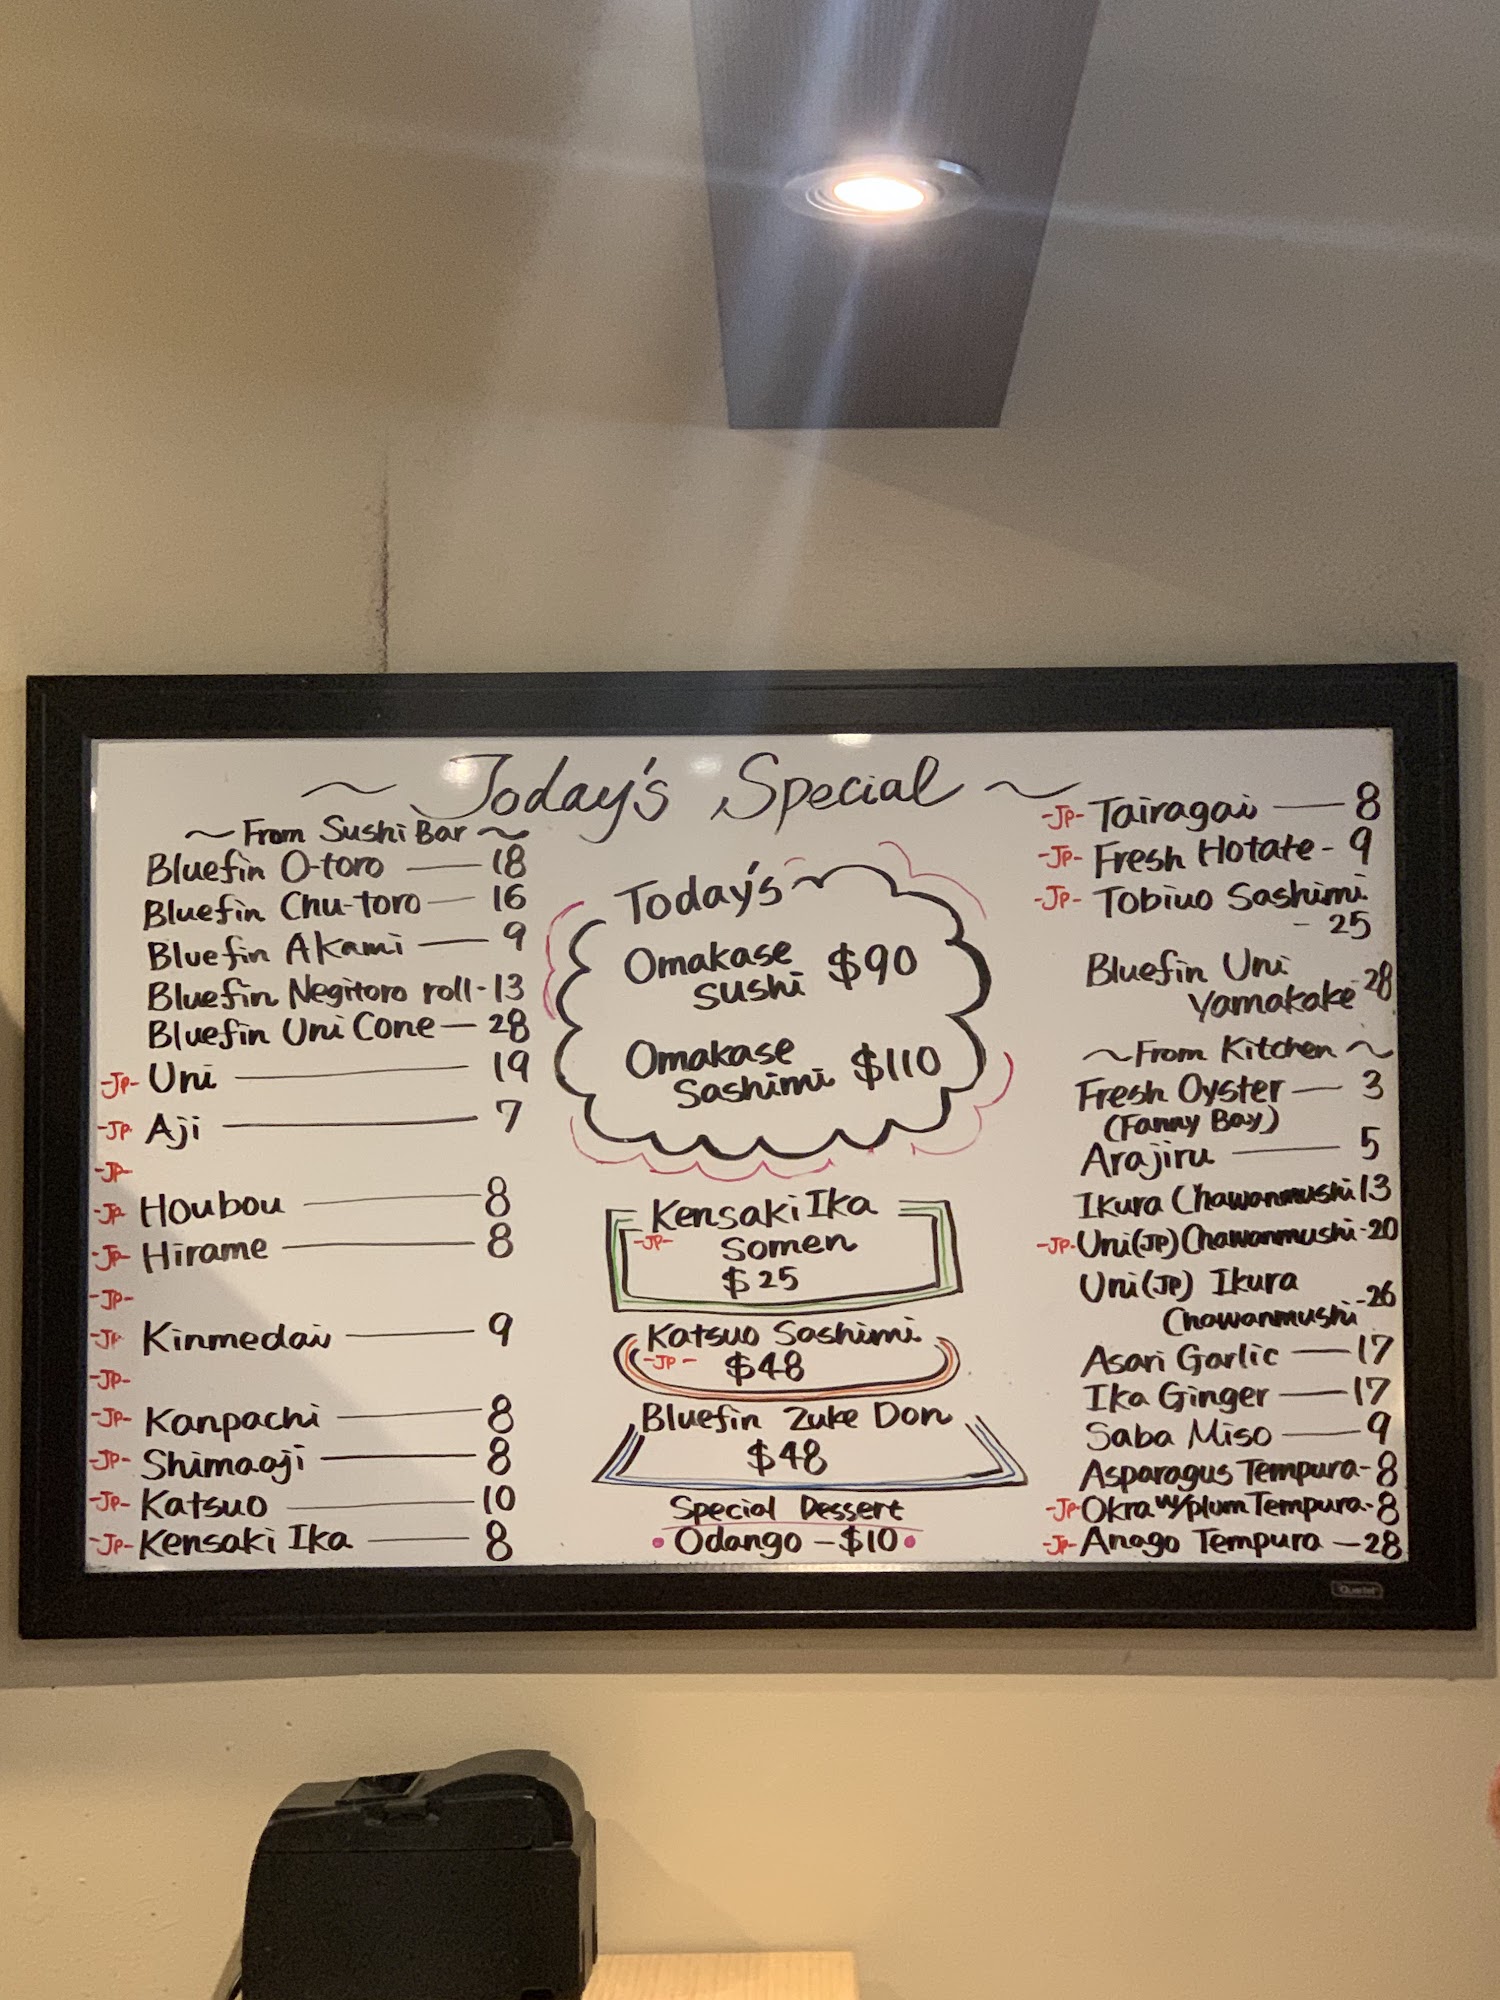 ~ Today's Special ~
~ From Sushi Bar ~
Bluefin O-toro — 18
Bluefin Chu-toro — 16
Bluefin Akami — 9
Bluefin Negitoro roll - 13
Bluefin Uni Cone — 28
-JP- Uni — 19
-JP- Aji — 7
-JP-
-JP- Houbou — 8
-JP- Hirame — 8
-JP-
-JP- Kinmedai — 9
-JP-
-JP- Kanpachi — 8
-JP- Shimaaji — 8
-JP- Katsuo — 10
-JP- Kensaki Ika — 8
Today's
Omakase
Sushi $90
Omakase
Sashimi $110
Kensaki Ika
-JP- Somen
$25
Katsuo Sashimi
-JP- $48
Bluefin Zuke Don
$48
Special Dessert
• Odango - $10 •
-JP- Tairagai — 8
-JP- Fresh Hotate - 9
-JP- Tobiuo Sashimi
- 25
Bluefin Uni
Yamakake - 28
~ From Kitchen ~
Fresh Oyster — 3
(Fanny Bay)
Arajiru — 5
Ikura Chawanmushi 13
-JP- Uni (JP) Chawanmushi - 20
Uni (JP) Ikura
Chawanmushi - 26
Asari Garlic — 17
Ika Ginger — 17
Saba Miso — 9
Asparagus Tempura - 8
-JP- Okra w/plum Tempura - 8
-JP- Anago Tempura — 28
Quartet